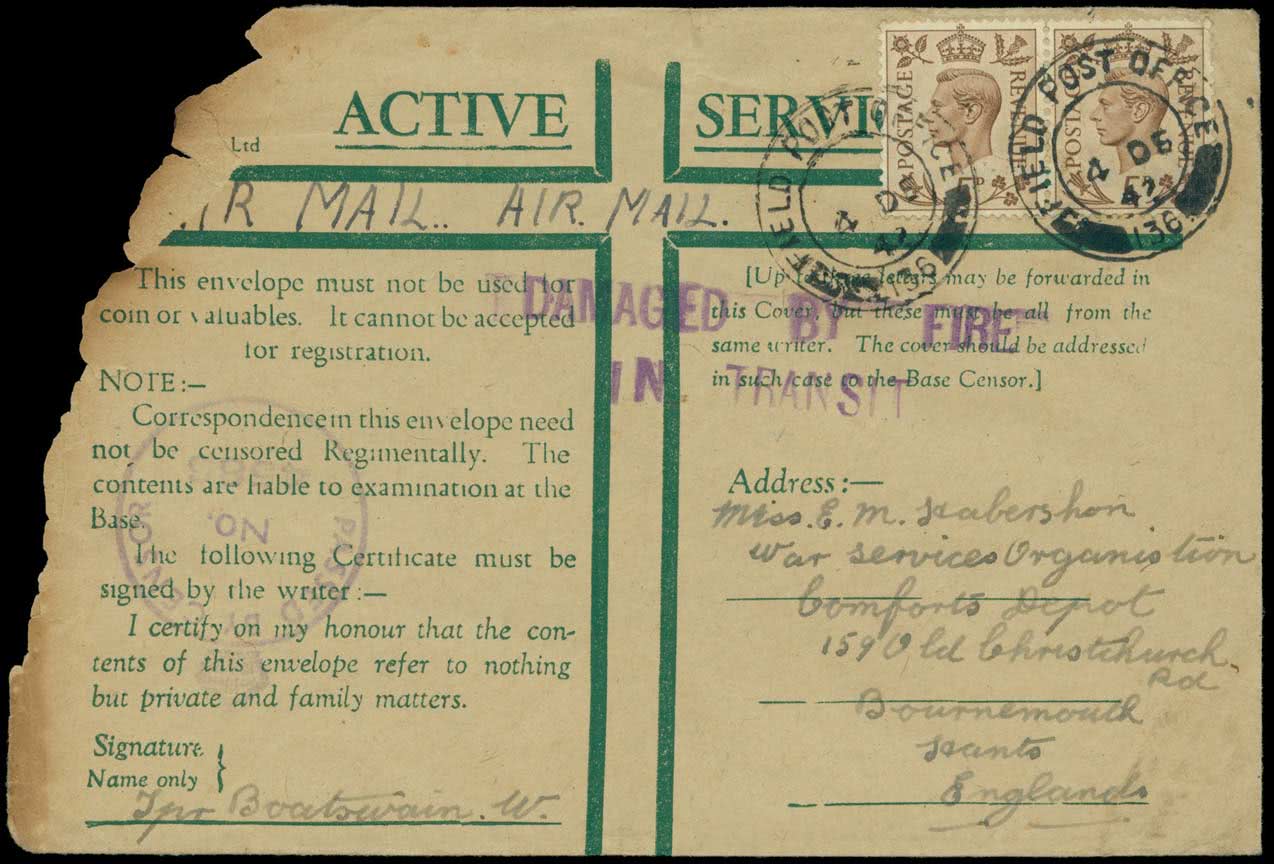 ACTIVE SERVI
Ltd
AIR MAIL.. AIR. MAIL.
POSTAGE REVENUE
5D
POSTAGE REVENUE
5D
FIELD POST OFFICE
4 DE
42
136
FIELD POST OFFICE
4 DE
42
136
This envelope must not be used for
coin or valuables. It cannot be accepted
for registration.
NOTE:—
Correspondence in this envelope need
not be censored Regimentally. The
contents are liable to examination at the
Base.
The following Certificate must be
signed by the writer:—
I certify on my honour that the con-
tents of this envelope refer to nothing
but private and family matters.
Signature
Name only }
Tpr Boatswain. W.
PASSED BY CENSOR
No.
DAMAGED BY FIRE
IN TRANSIT
[Up to three letters may be forwarded in
this Cover, but these must be all from the
same writer. The cover should be addressed
in such case to the Base Censor.]
Address:—
Miss. E. M. Habershon
War Services Organistion
Comforts Depot
159 Old Christchurch
Rd
Bournemouth
Hants
England.